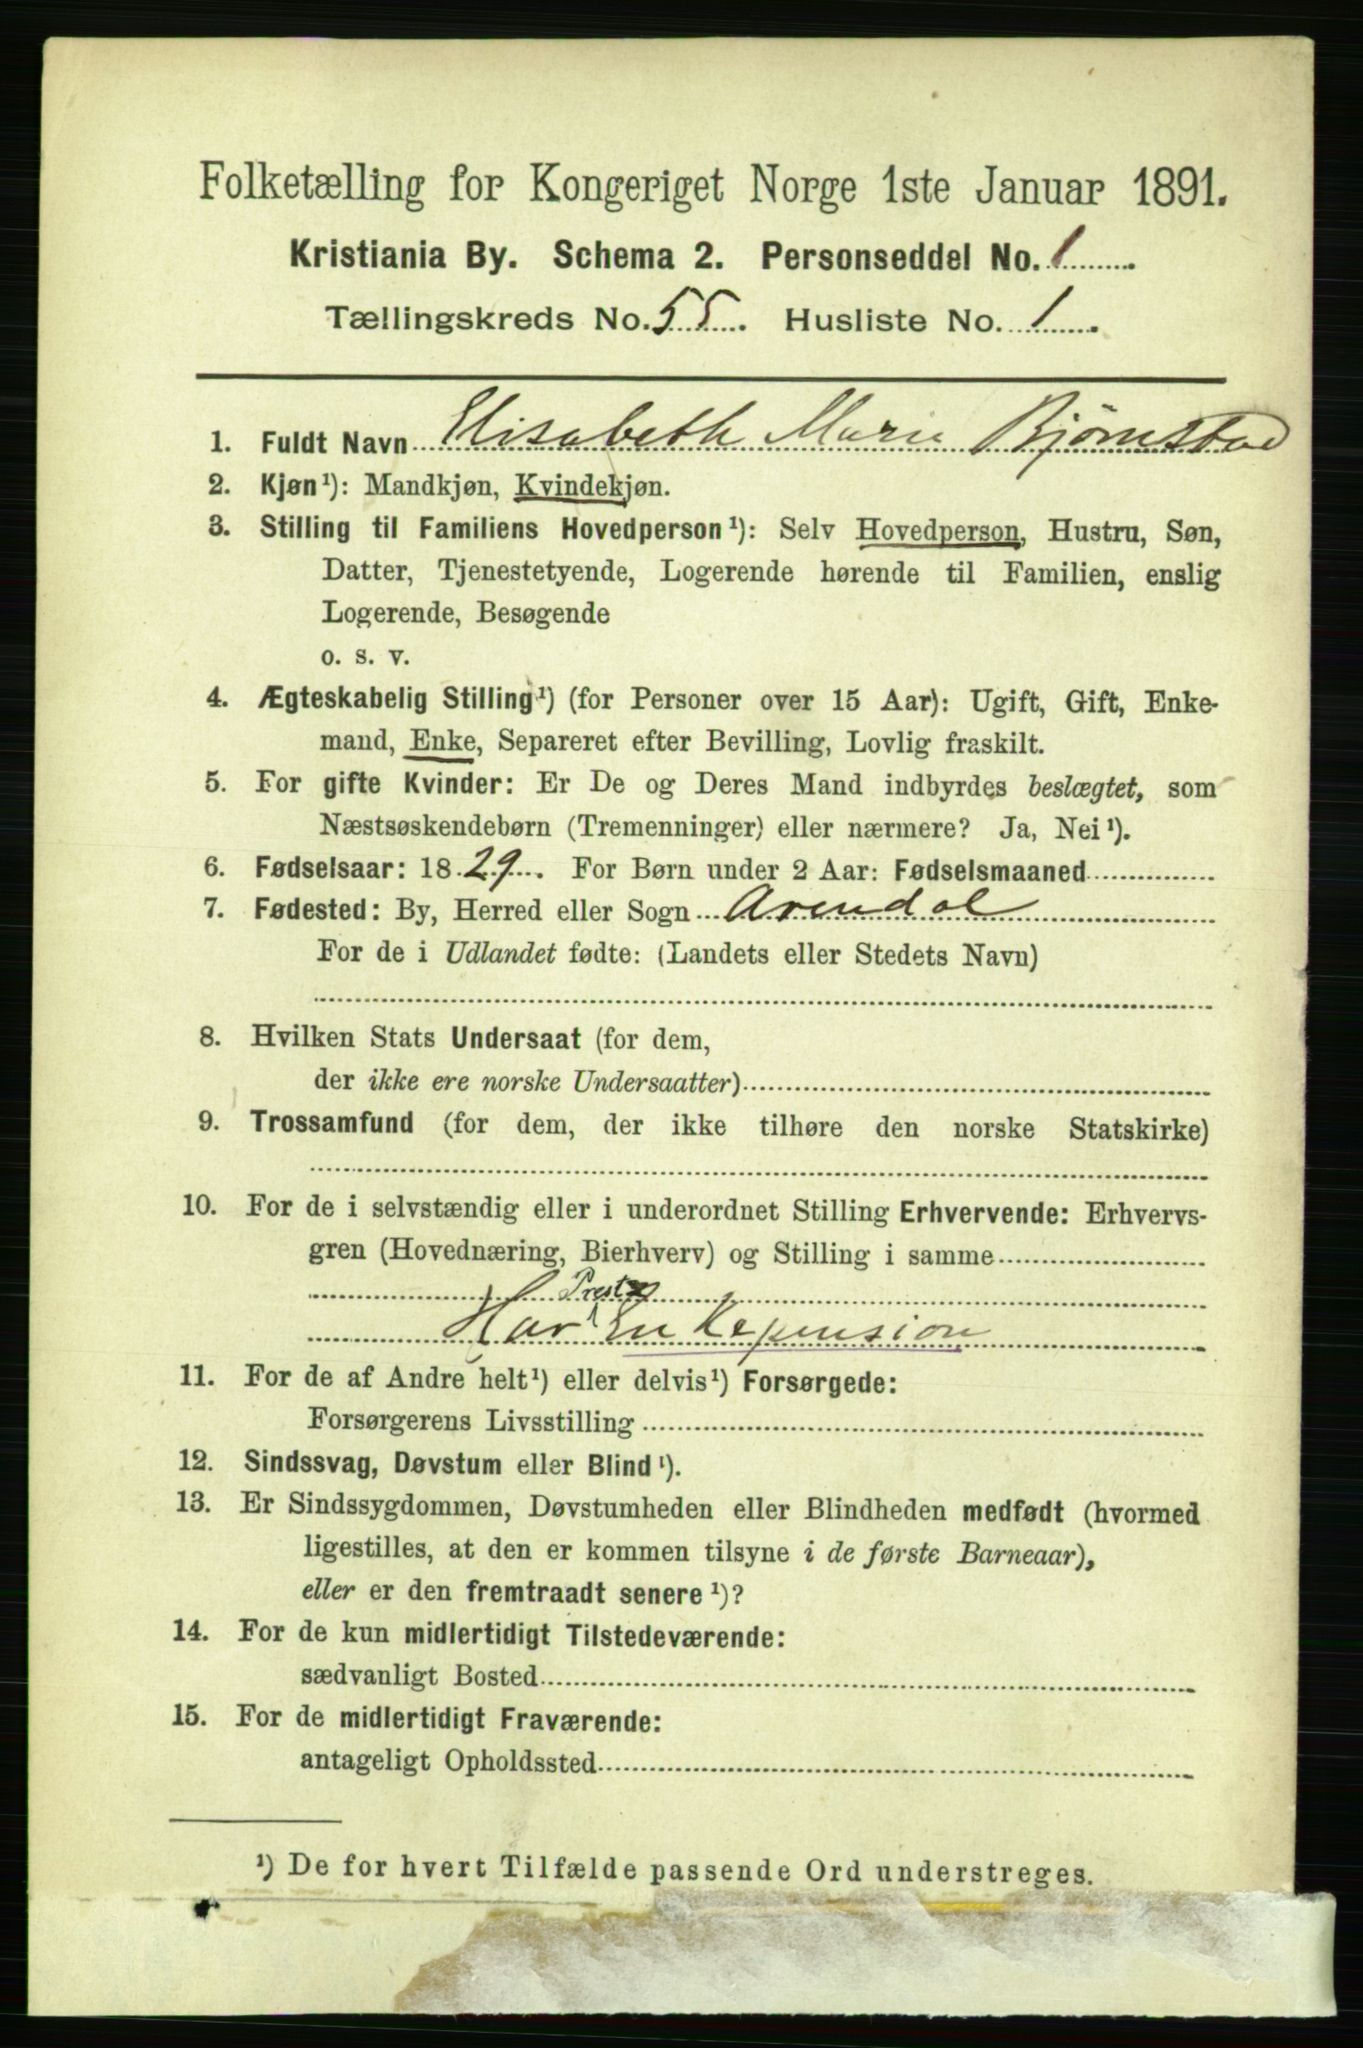 Folketælling for Kongeriget Norge 1ste Januar 1891.
Kristiania By. Schema 2. Personseddel No. 1
Tællingskreds No. 55. Husliste No. 1.
1. Fuldt Navn Elisabeth Marie Bjørnstad
2. Kjøn¹): Mandkjøn, Kvindekjøn.
3. Stilling til Familiens Hovedperson¹): Selv Hovedperson, Hustru, Søn,
Datter, Tjenestetyende, Logerende hørende til Familien, enslig
Logerende, Besøgende
o. s. v.
4. Ægteskabelig Stilling¹) (for Personer over 15 Aar): Ugift, Gift, Enke-
mand, Enke, Separeret efter Bevilling, Lovlig fraskilt.
5. For gifte Kvinder: Er De og Deres Mand indbyrdes beslægtet, som
Næstsøskendebørn (Tremenninger) eller nærmere? Ja, Nei¹).
6. Fødselsaar: 1829. For Børn under 2 Aar: Fødselsmaaned
7. Fødested: By, Herred eller Sogn Arendal
For de i Udlandet fødte: (Landets eller Stedets Navn)
8. Hvilken Stats Undersaat (for dem,
der ikke ere norske Undersaatter)
9. Trossamfund (for dem, der ikke tilhøre den norske Statskirke)
10. For de i selvstændig eller i underordnet Stilling Erhvervende: Erhvervs-
gren (Hovednæring, Bierhverv) og Stilling i samme
Prest
Har Enkepension
11. For de af Andre helt¹) eller delvis¹) Forsørgede:
Forsørgerens Livsstilling
12. Sindssvag, Døvstum eller Blind¹).
13. Er Sindssygdommen, Døvstumheden eller Blindheden medfødt (hvormed
ligestilles, at den er kommen tilsyne i de første Barneaar),
eller er den fremtraadt senere¹)?
14. For de kun midlertidigt Tilstedeværende:
sædvanligt Bosted
15. For de midlertidigt Fraværende:
antageligt Opholdssted
¹) De for hvert Tilfælde passende Ord understreges.